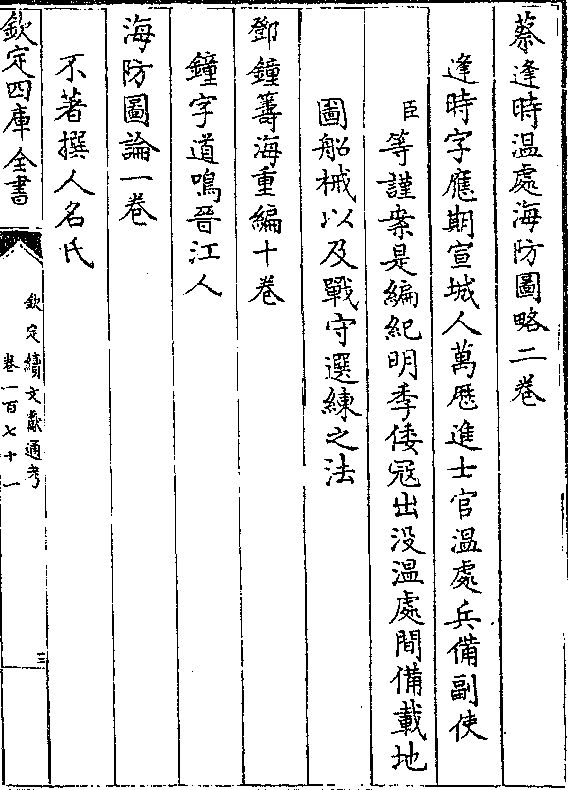 蔡逢時温處海防圖略二卷
逢時字應期宣城人萬歴進士官温處兵備副使
臣等謹案是編紀明季倭冦出没温處間備載地
圖船械以及戰守選練之法
鄧鐘籌海重編十卷
鐘字道鳴晉江人
海防圖論一卷
不著撰人名氏
欽定四庫全書
欽定續文獻通考
卷一百七十一
三